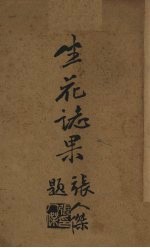 坐花誌果
張人傑
題